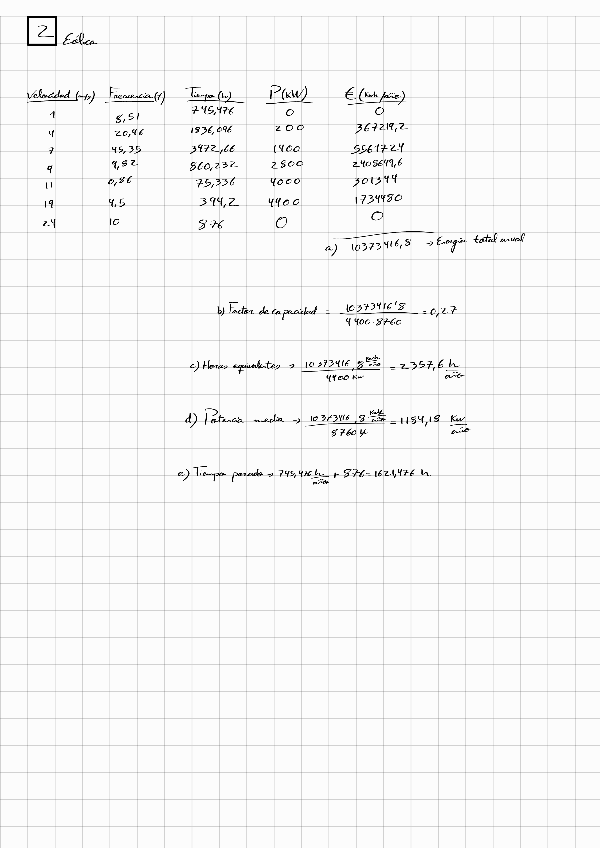 2 Eólica
Velocidad (m/s) Frecuencia (f) Tiempo (h) P(kW) E.(Kwh/año)
1 8,51 745,476 0 0
4 20,96 1836,096 200 367219,2
7 45,35 3972,66 1400 5561724
9 9,82 860,232 2800 2408649,6
11 0,86 75,336 4000 301344
19 4,5 394,2 4400 1734480
24 10 876 0 0
a) 10373416,8 → Energía total anual
b) Factor de capacidad = 10373416'8 / 4400·8760 = 0,27
c) Horas equivalentes → 10373416,8 Kwh/año / 4400 Kw = 2357,6 h/año
d) Potencia media → 10373416,8 Kwh/año / 8760 h = 1184,18 Kw/año
e) Tiempo parado → 745,476 h/año + 876 = 1621,476 h